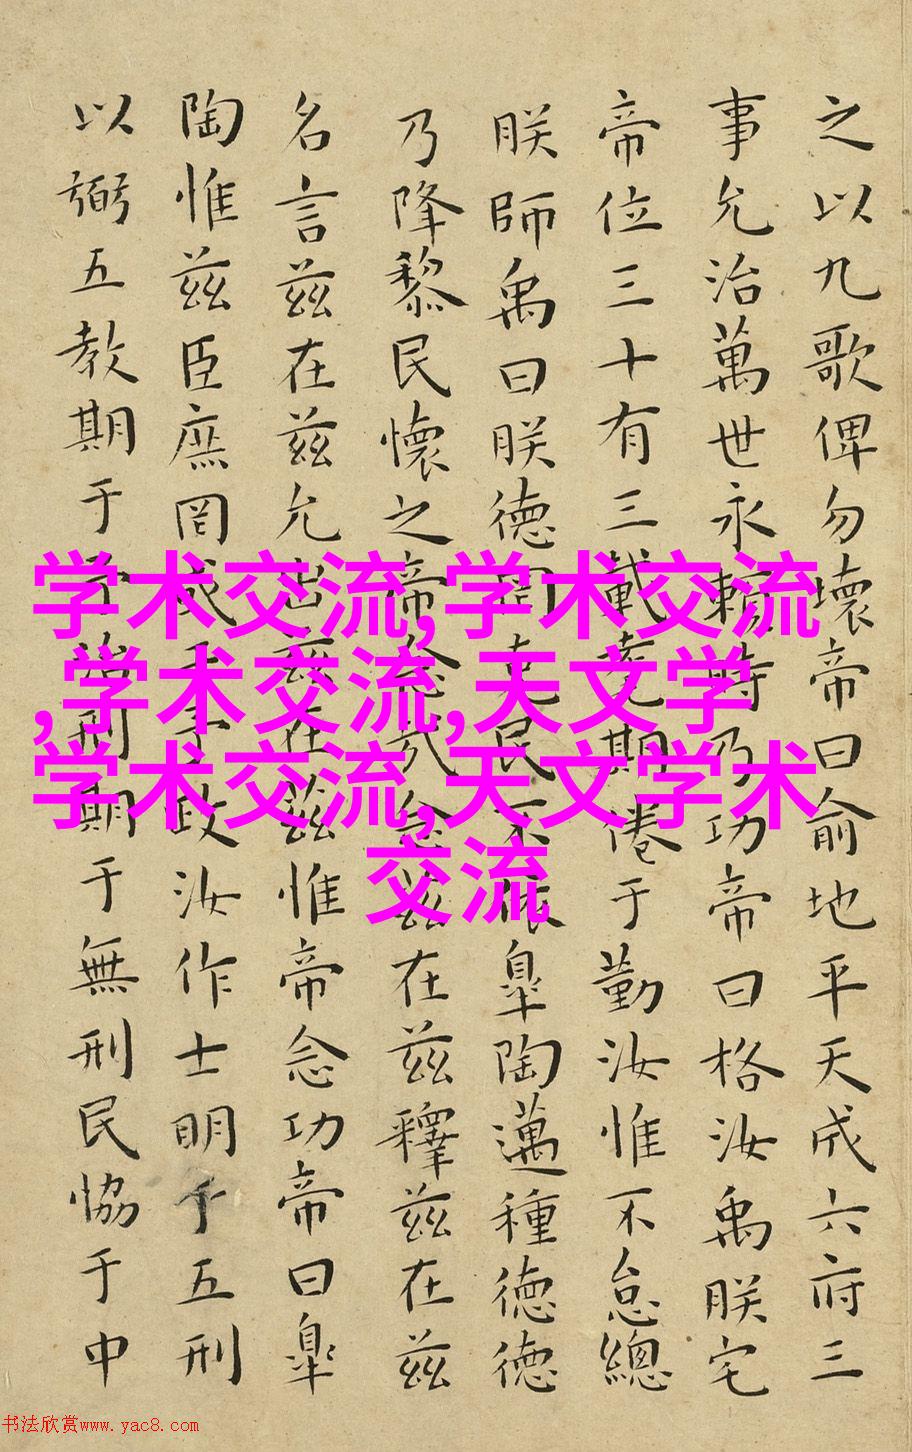 之以九歌俾勿壞帝曰俞地平天成六府三
事允治萬世永賴時乃功帝曰格汝禹朕宅
帝位三十有三載耄期倦于勤汝惟不怠總
朕師禹曰朕德罔克民不依臯陶邁種德德
乃降黎民懷之帝念哉念兹在兹釋兹在兹
名言兹在兹允出兹在兹惟帝念功帝曰臯
陶惟兹臣庶罔或干予政汝作士明于五刑
以弼五教期于予治刑期于無刑民協于中
学术交流,学术交流
,学术交流,天文学
学术交流,天文学术
交流
书法欣赏www.yac8.com